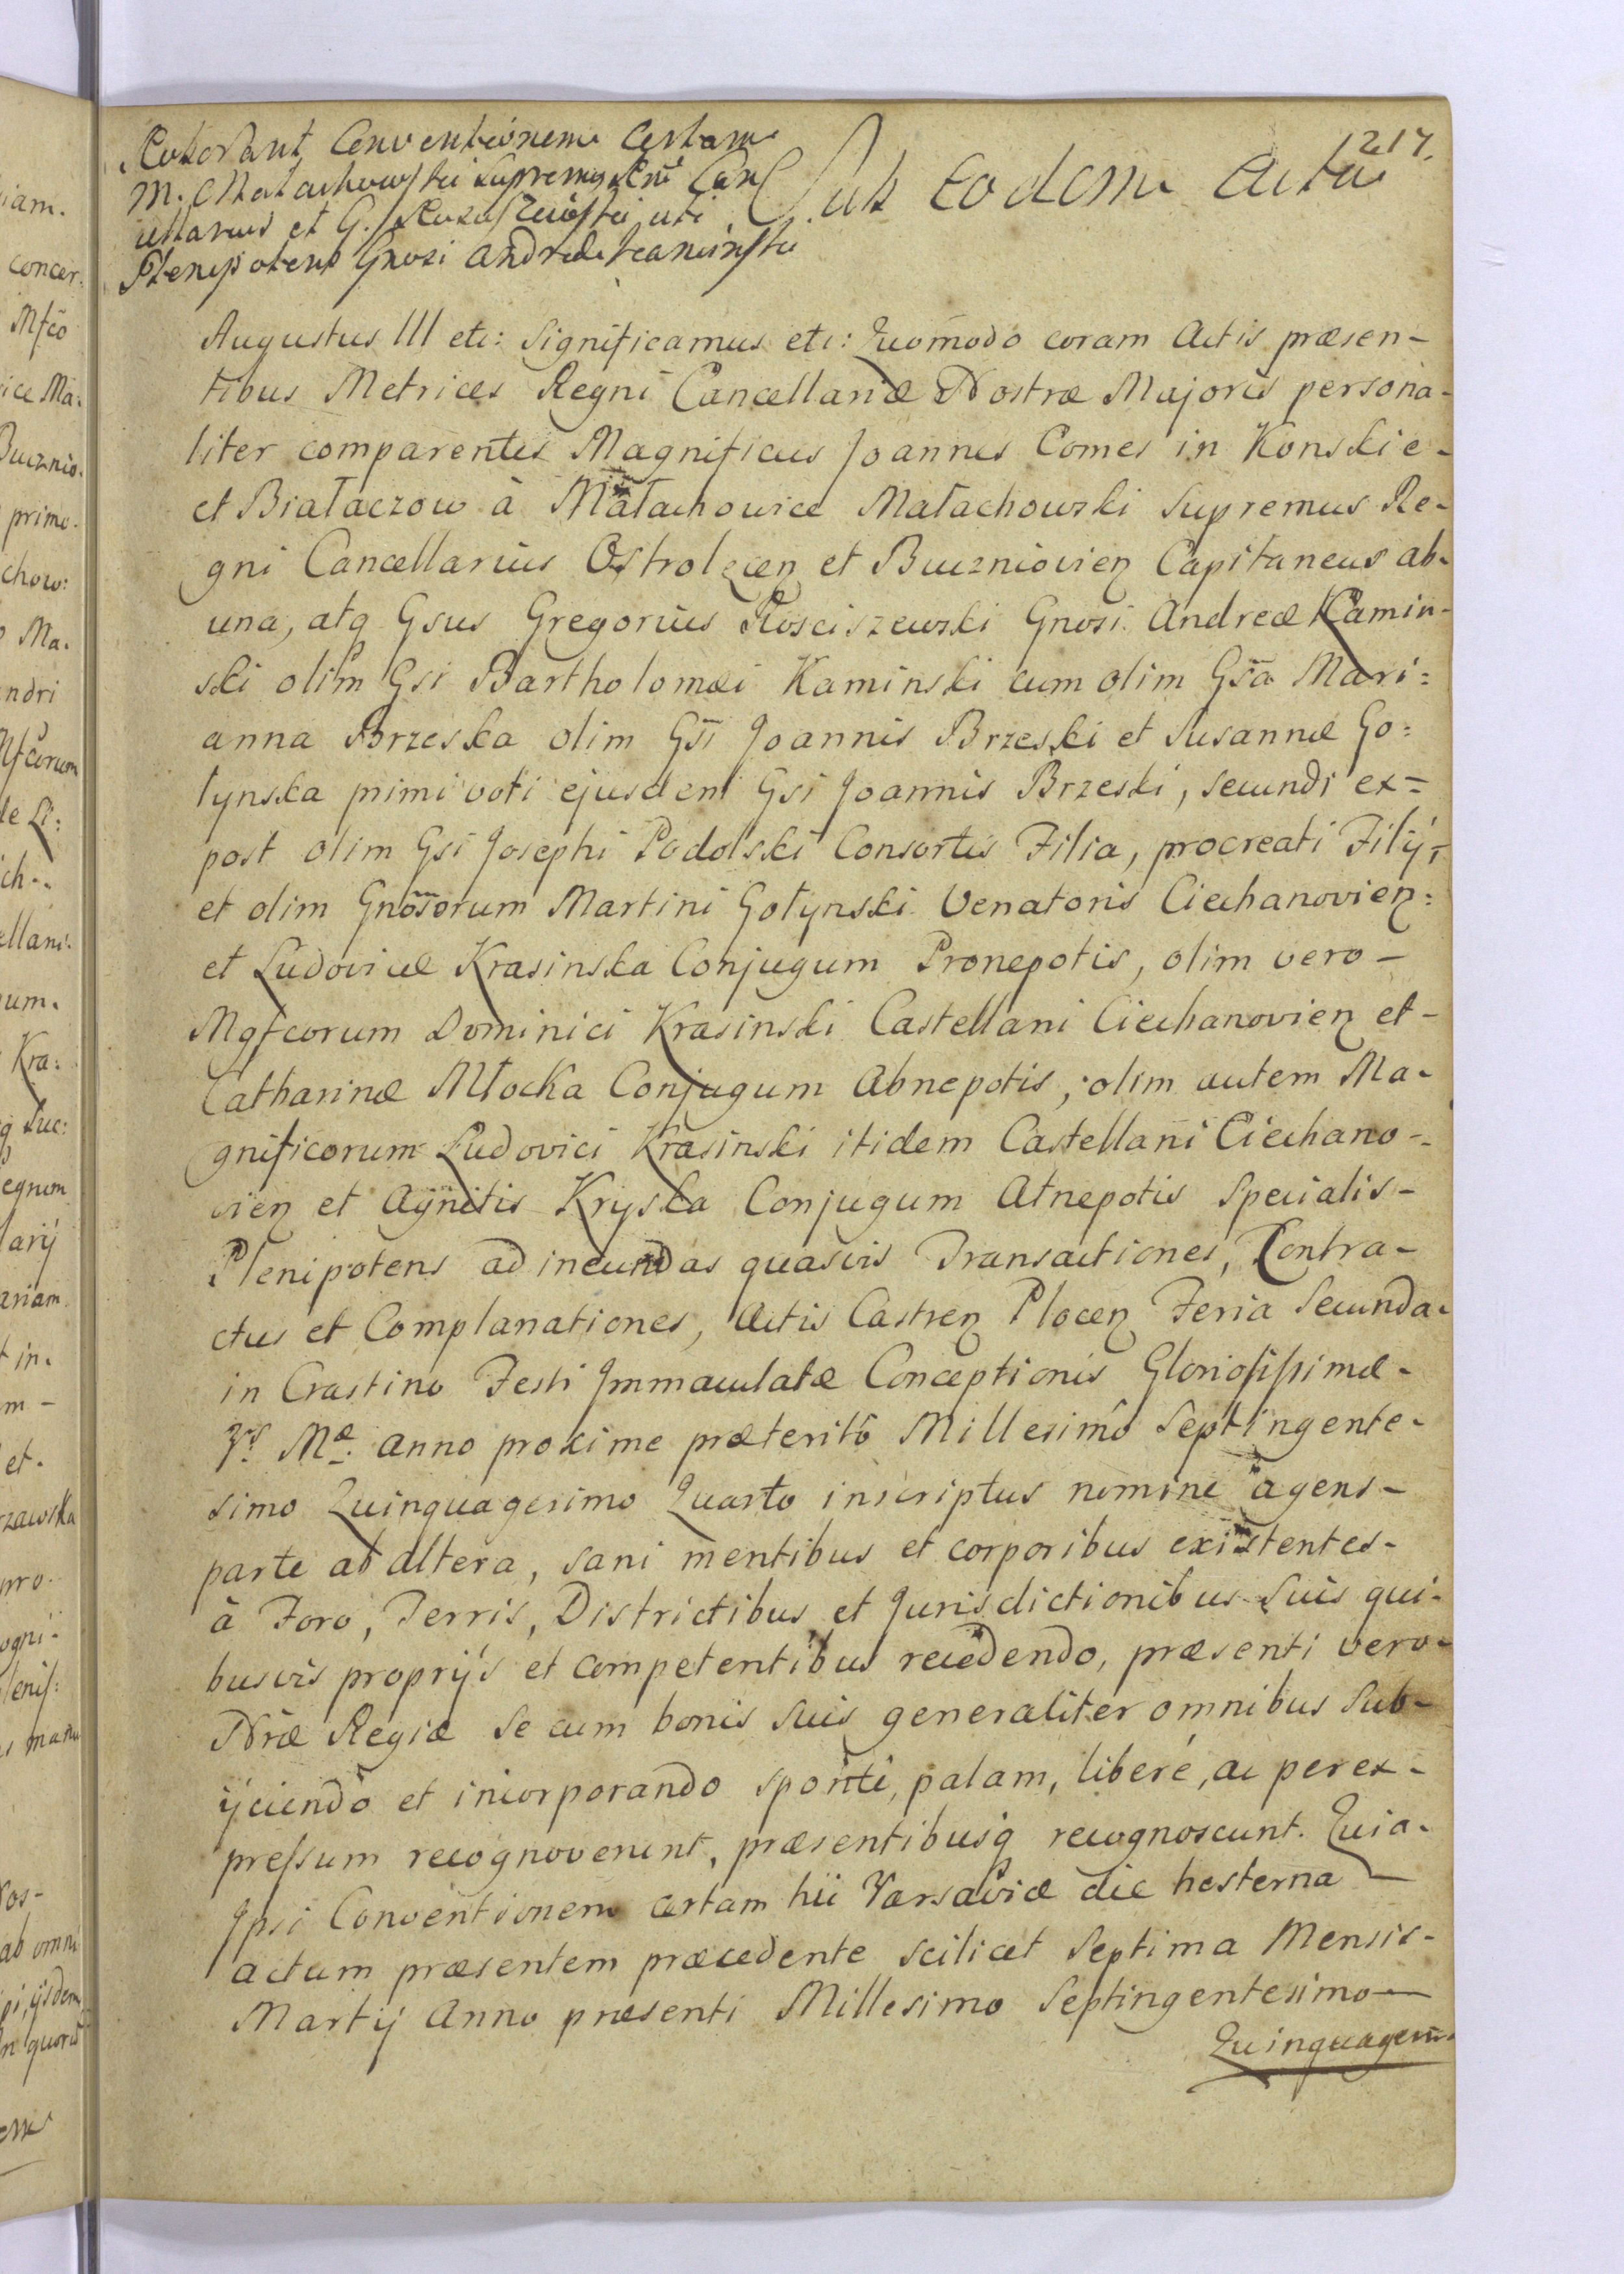 1217.
Roborant Conventionem Certam
M. Małachowski Supremus Rni Can
cellarius et G. Rosciszewski uti
Plenipotens Gnosi Andreæ Kaminski
Sub eodem Actu
Augustus III etc: Significamus etc: Quomodo coram Actis præsen-
tibus Metrices Regni Cancellariæ Nostræ Majoris persona-
liter comparentes Magnificus Joannes Comes in Konskie-
et Białaczow à Małachowice Małachowski Supremus Re-
gni Cancellarius Ostrolęcen et Buczniovien Capitaneus ab-
una, atq Gsus Gregorius Rosciszewski Gnosi Andreæ Kamin-
ski olim Gsi Bartholomæi Kaminski cum olim Gsa Mari:
anna Brzeska olim Gsi Joannis Brzeski et Susannæ Go:
łynska primi voti ejusdem Gsi Joannis Brzeski, secundi ex=
post olim Gsi Josephi Podolski Consortis Filia, procreati Filij,
et olim Gnosorum Martini Gołynski Venatoris Ciechanovien:
et Ludovicæ Krasinska Conjugum Pronepotis, olim vero-
Mgfcorum Dominici Krasinski Castellani Ciechanovien et-
Catharinæ Młocka Conjugum Abnepotis, olim autem Ma-
gnificorum Ludovici Krasinski itidem Castellani Ciechano-
vien et Agnetis Kryska Conjugum Atnepotis Specialis-
Plenipotens ad ineundas quasvis Transactiones, Contra-
ctus et Complanationes, Actis Castren Plocen Feria Secunda-
in Crastino Festi Immaculatæ Conceptionis Gloriosissimæ-
V.s M.æ anno proxime præterito Millesimo Septingente-
simo Quinquagesimo Quarto inscriptus nomine agens-
parte ab altera, sani mentibus et corporibus existentes-
à Foro, Terris, Districtibus et Jurisdictionibus Suis qui-
busvis proprijs et competentibus recedendo, præsenti vero-
Nræ Regiæ Se cum bonis suis generaliter omnibus Sub-
ijciendo et incorporando sponte, palam, liberé, ac per ex-
pressum recognoverunt, præsentibusq recognoscunt. Quia-
Ipsi Conventionem certam hii Varsaviæ die hesterna
actum præsentem præcedente scilicet Septima Mensis-
Martij Anno præsenti Millesimo Septingentesimo-
Quinquagesi-